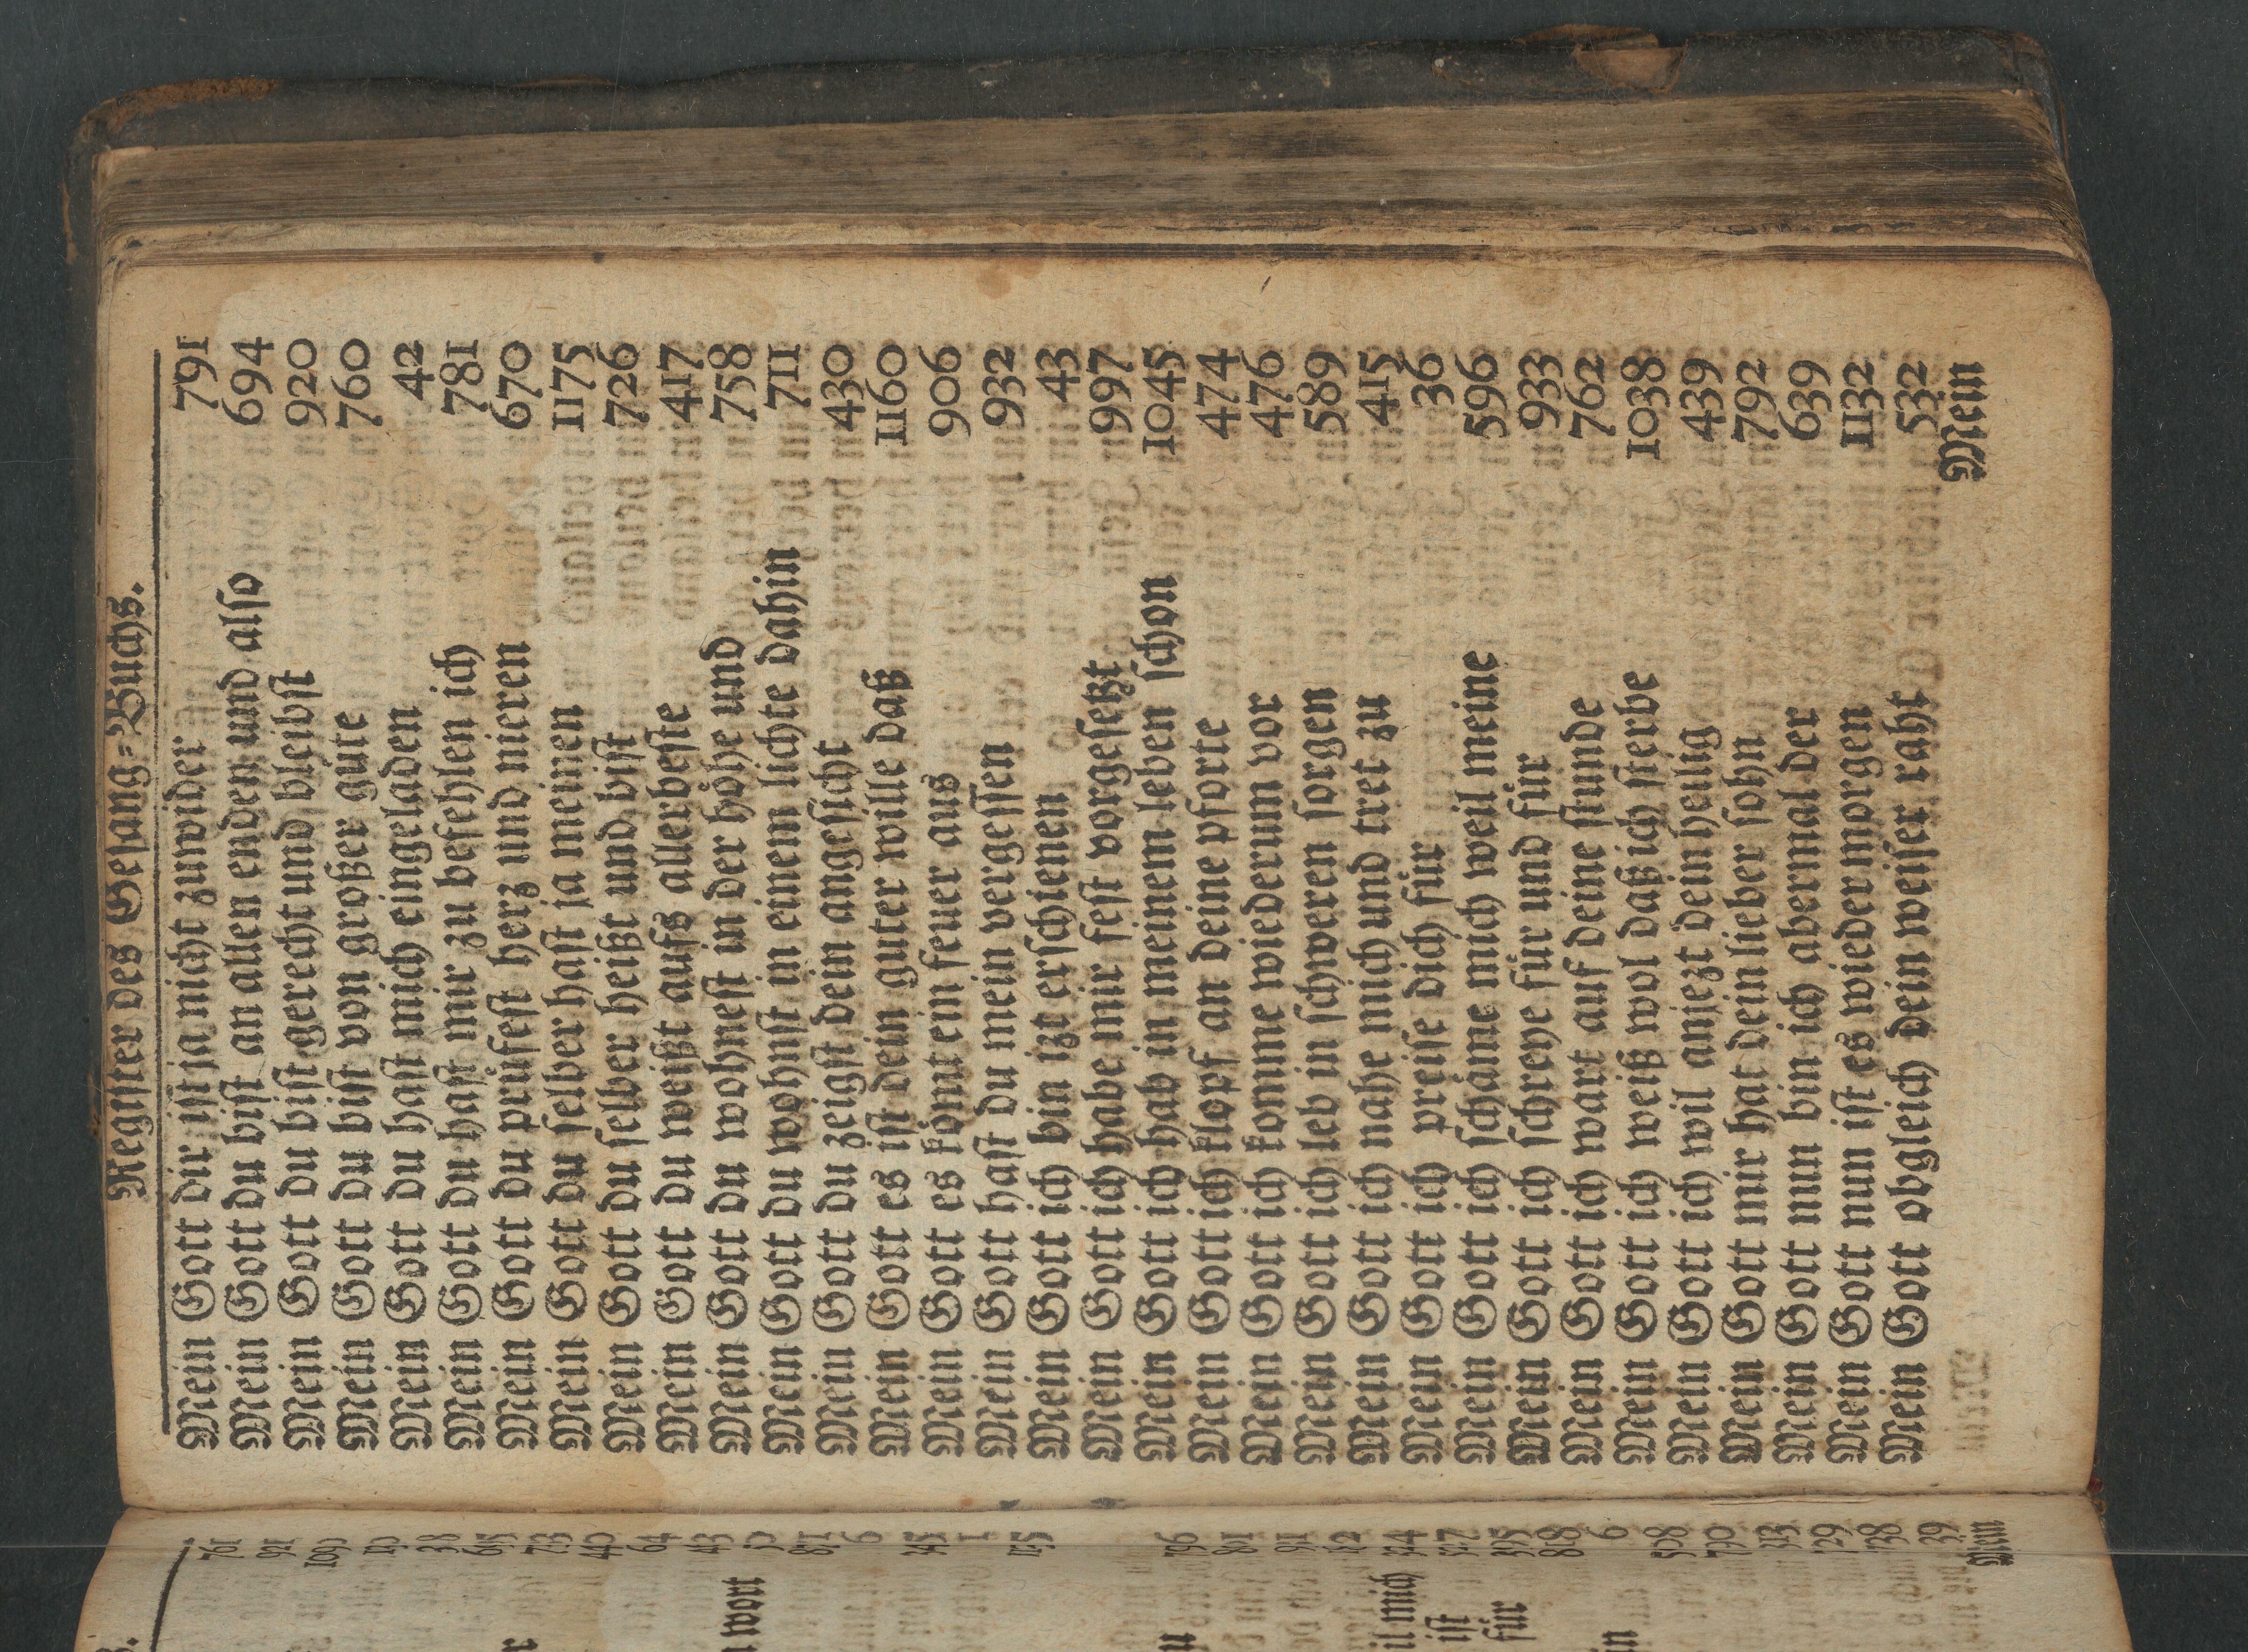 Register des Gesang=Buchs.
Mein Gott dir ist ja nicht zuwider 791
Mein Gott du bist an allen enden und also 694
Mein Gott du bist gerecht und bleibst 920
Mein Gott du bist von großer güte 760
Mein Gott du hast mich eingeladen 42
Mein Gott du hast mir zu befehlen ich 781
Mein Gott du prüfest herz und nieren 670
Mein Gott du selber hast ja meinen 1175
Mein Gott du selber heißt und bist 726
Mein Gott du weißt aufs allerbeste 417
Mein Gott du wohnest in der höhe und 758
Mein Gott du wohnst in einem lichte dahin 711
Mein Gott du zeigst dein angesicht 430
Mein Gott es ist dein guter wille daß 1160
Mein Gott es kömt ein feuer aus 906
Mein Gott hast du mein vergessen 932
Mein Gott ich bin izt erschienen 43
Mein Gott ich habe mir fest vorgesetzt 997
Mein Gott ich hab in meinem leben schon 1045
Mein Gott ich klopf an deine pforte 474
Mein Gott ich komme wiederum vor 476
Mein Gott ich leb in schweren sorgen 589
Mein Gott ich nahe mich und tret zu 415
Mein Gott ich preise dich für 36
Mein Gott ich schäme mich weil meine 596
Mein Gott ich schreye für und für 933
Mein Gott ich wart auf deine stunde 762
Mein Gott ich weiß wol daß ich sterbe 1038
Mein Gott ich wil anjezt dein heilig 439
Mein Gott mir hat dein lieber sohn 792
Mein Gott nun bin ich abermal der 639
Mein Gott nun ist es wieder morgen 1132
Mein Gott obgleich dein weiser raht 532
Mein
wort
mich
ist
für